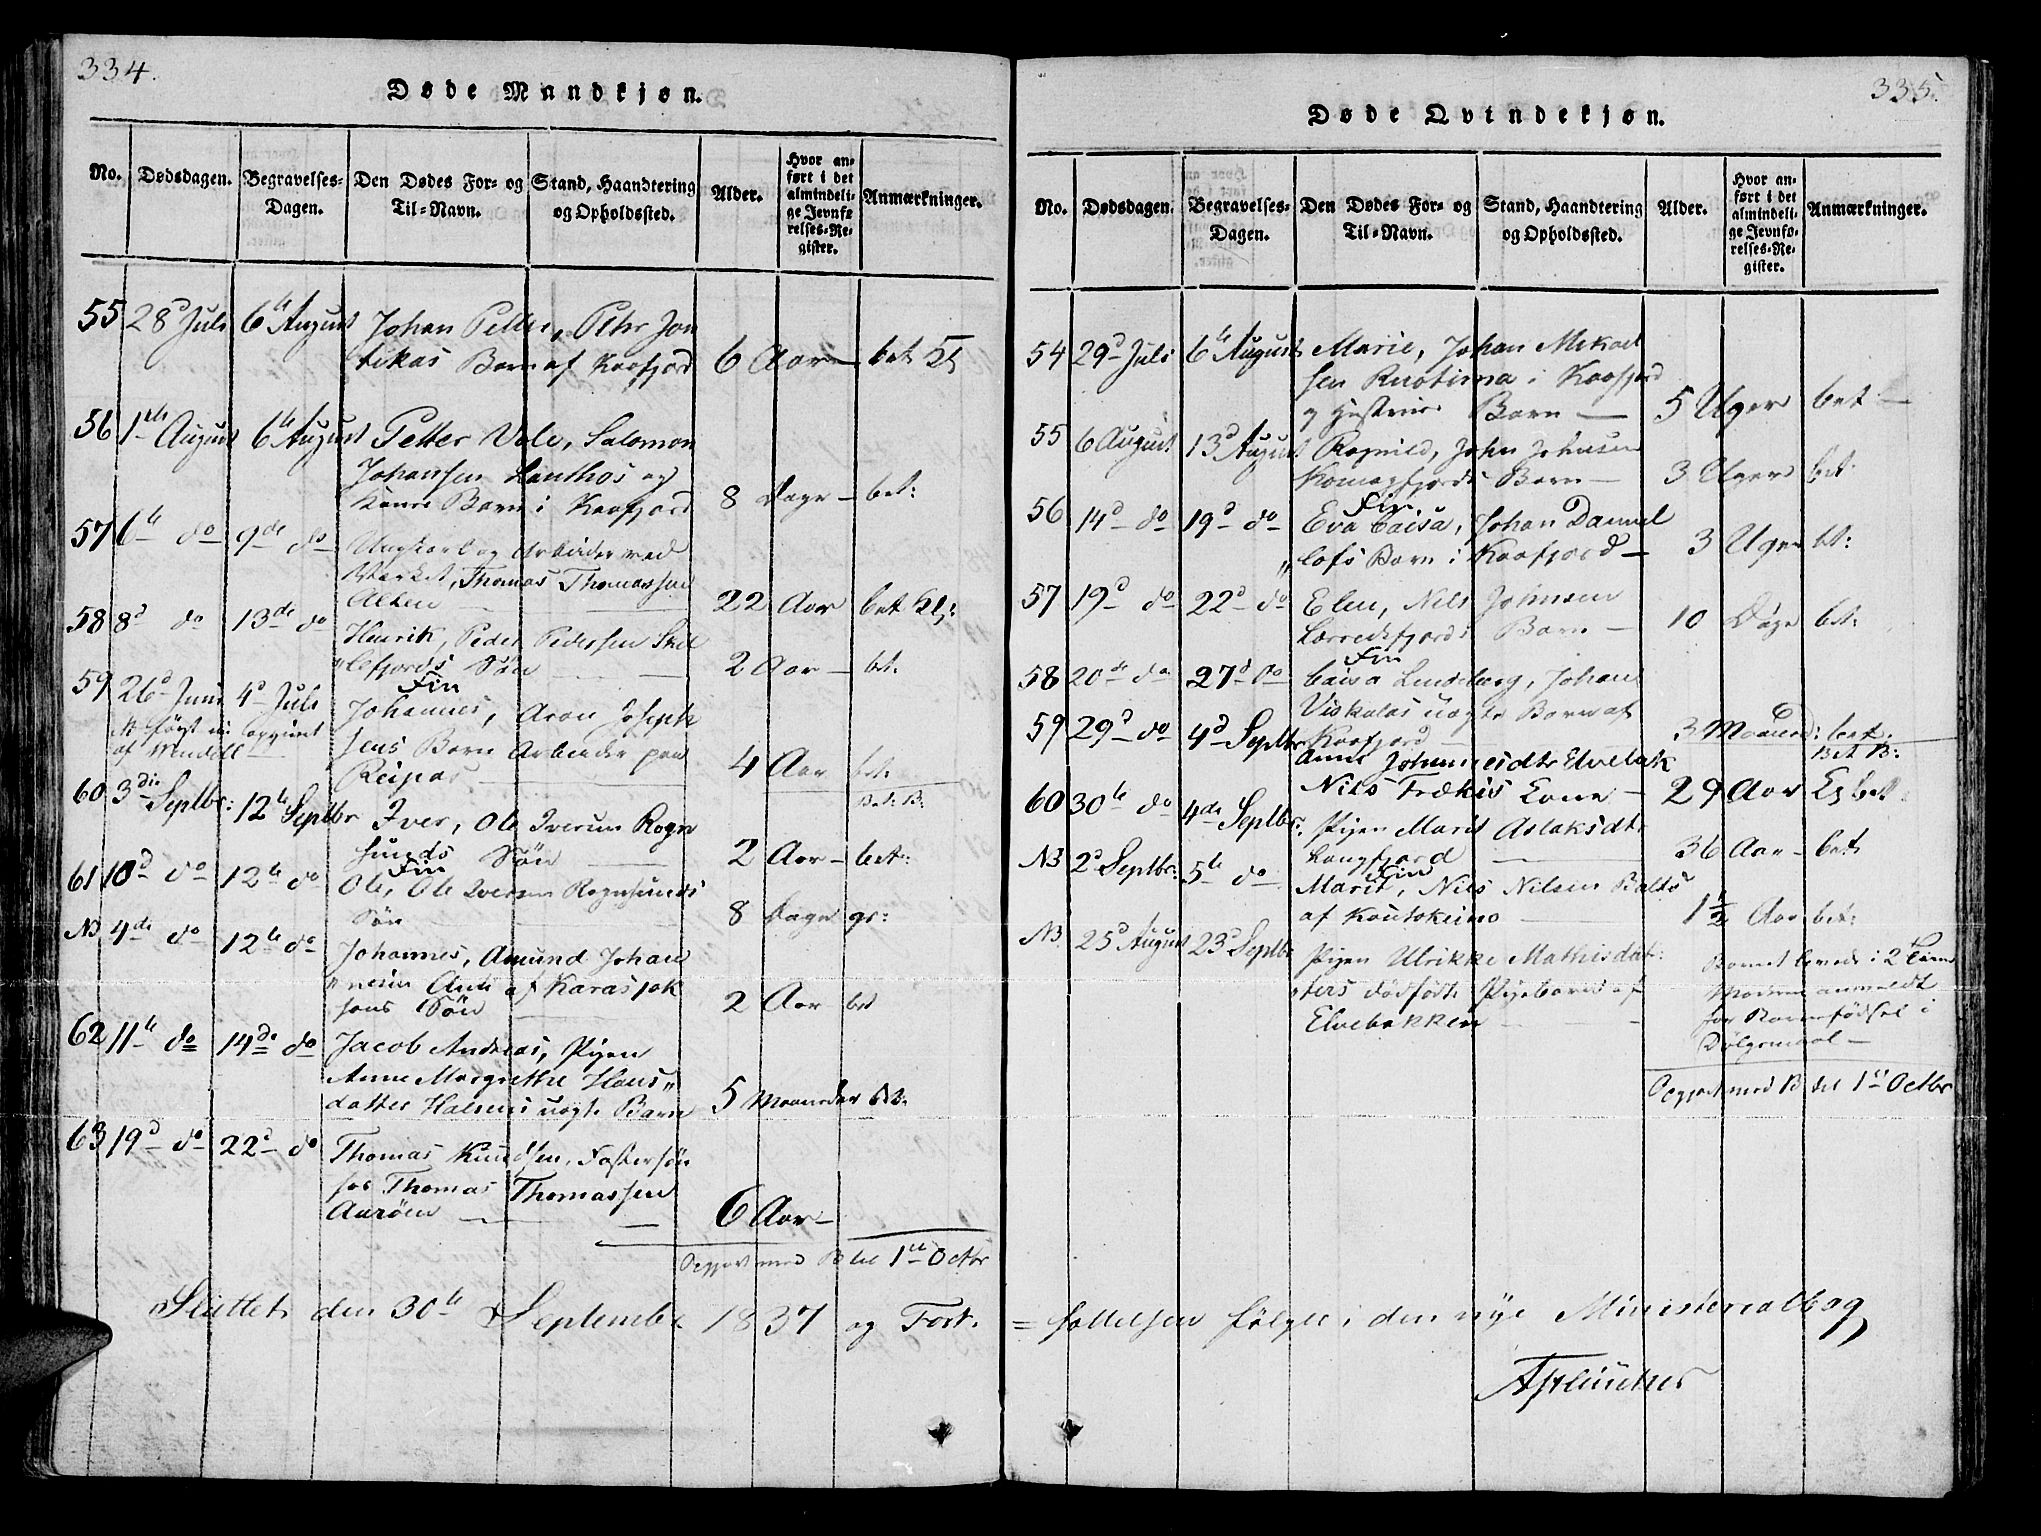 334.
Døde Mandkjøn.
No.
Dødsdagen.
Begravelses-
Dagen.
Den Dødes For- og
Til-Navn.
Stand, Haandtering
og Opholdssted.
Alder.
Hvor an-
ført i det
almindeli-
ge Jevnfø
relses-Re-
gister.
Anmærkninger.
55 28d Juli 6te August Johan Petter, Pehr Jon
tikas Barn af Kaafjord 6 Aar — bet
56 1ste August 6te August Petter Vole, Salomon
Johansen Lanthos og
Kones Barn i Kaafjord 8 Dage — bet:
57 6te do 9de do Ungkarl og Arbeider ved
Værket, Thomas Thomassen
Alten — 22 Aar bet Kl:
58 8d do 13de do Henrik, Peder Pedersen Skil
lefjords Søn — 2 Aar — bet:
59 26d Juni 4d Juli Fin
Johannes, Aron Joseph
sens Barn Arbeider paa
Reipas — 4 Aar bet:
Bet: B:
60 3die Septbr: 12te Septbr Iver, Ole Iversen Rogn
sunds Søn — 2 Aar — bet:
61 10d do 12te do Fin
Ole, Ole Iversen Rognsunds
Søn 8 Dage gr:
NB 4de do 12te do Johannes, Amund Johan
nesen af Karasjok
Søn — 2 Aar bet
62 11te do 14de do Jacob Andreas, Pigen
Anne Margrethe Hans
datter Halsens uægte Barn 5 Maaneder bet:
63 19d do 22d do Thomas Knudsen, Fostersøn
for Thomas Thomassen
Aarøen — 6 Aar —
Opgjort med B til 1ste Octbr
Sluttet den 30te September 1837 og Fort-
335.
Døde Qvindekjøn.
No.
Dødsdagen.
Begravelses-
Dagen.
Den Dødes For- og
Til-Navn.
Stand, Haandtering
og Opholdssted.
Alder.
Hvor an-
ført i det
almindeli-
ge Jevnfø-
relses-Re-
gister.
Anmærkninger.
54 29d Juli 6te August Marie, Johan Mikael
sen Ruotima i Kaafjord
og Hustrues Barn — 5 Uger bet —
55 6 August 13d August Ragnild, John Johnsen
Komagfjords Barn — 3 Uger bet:
56 14d do 19d do Fin
Eva Caisa, Johan Daniel
lofs Barn i Kaafjord — 3 Uger bt:
57 19d do 22d do Elen, Nils Johnsen
Lerredsfjords Barn — 10 Dage bet:
58 20de do 27d do Fin
Caisa Lindeborg, Johan
Viskalas uægte Barn af
Kaafjord — 3 Maaned: bet:
Bet B:
59 29d do 4d Septbr Anne Johannesdtr Elvebak
Nils Frækis Kone — 29 Aar bet:
60 30te do 4de Septbr: Pigen Marit Aslaksdtr
Langfjord — 36 Aar — bet
NB 2d Septbr: 5te do Fin
Marit, Nils Nilsen Balto
af Koutokeino — 1½ Aar bet:
NB. 25d August 23d Septbr Pigen Ulrikke Mathisdat:
ters dødfødte Pigebarn af
Elvebakken —
Barnet levede i 2 Timer
Moderen anmeldt
for Barnefødsel i
Dølgsmaal —
Opgjort med B til 1ste Octbr
= sættelsen følger i den nye Ministerialbog